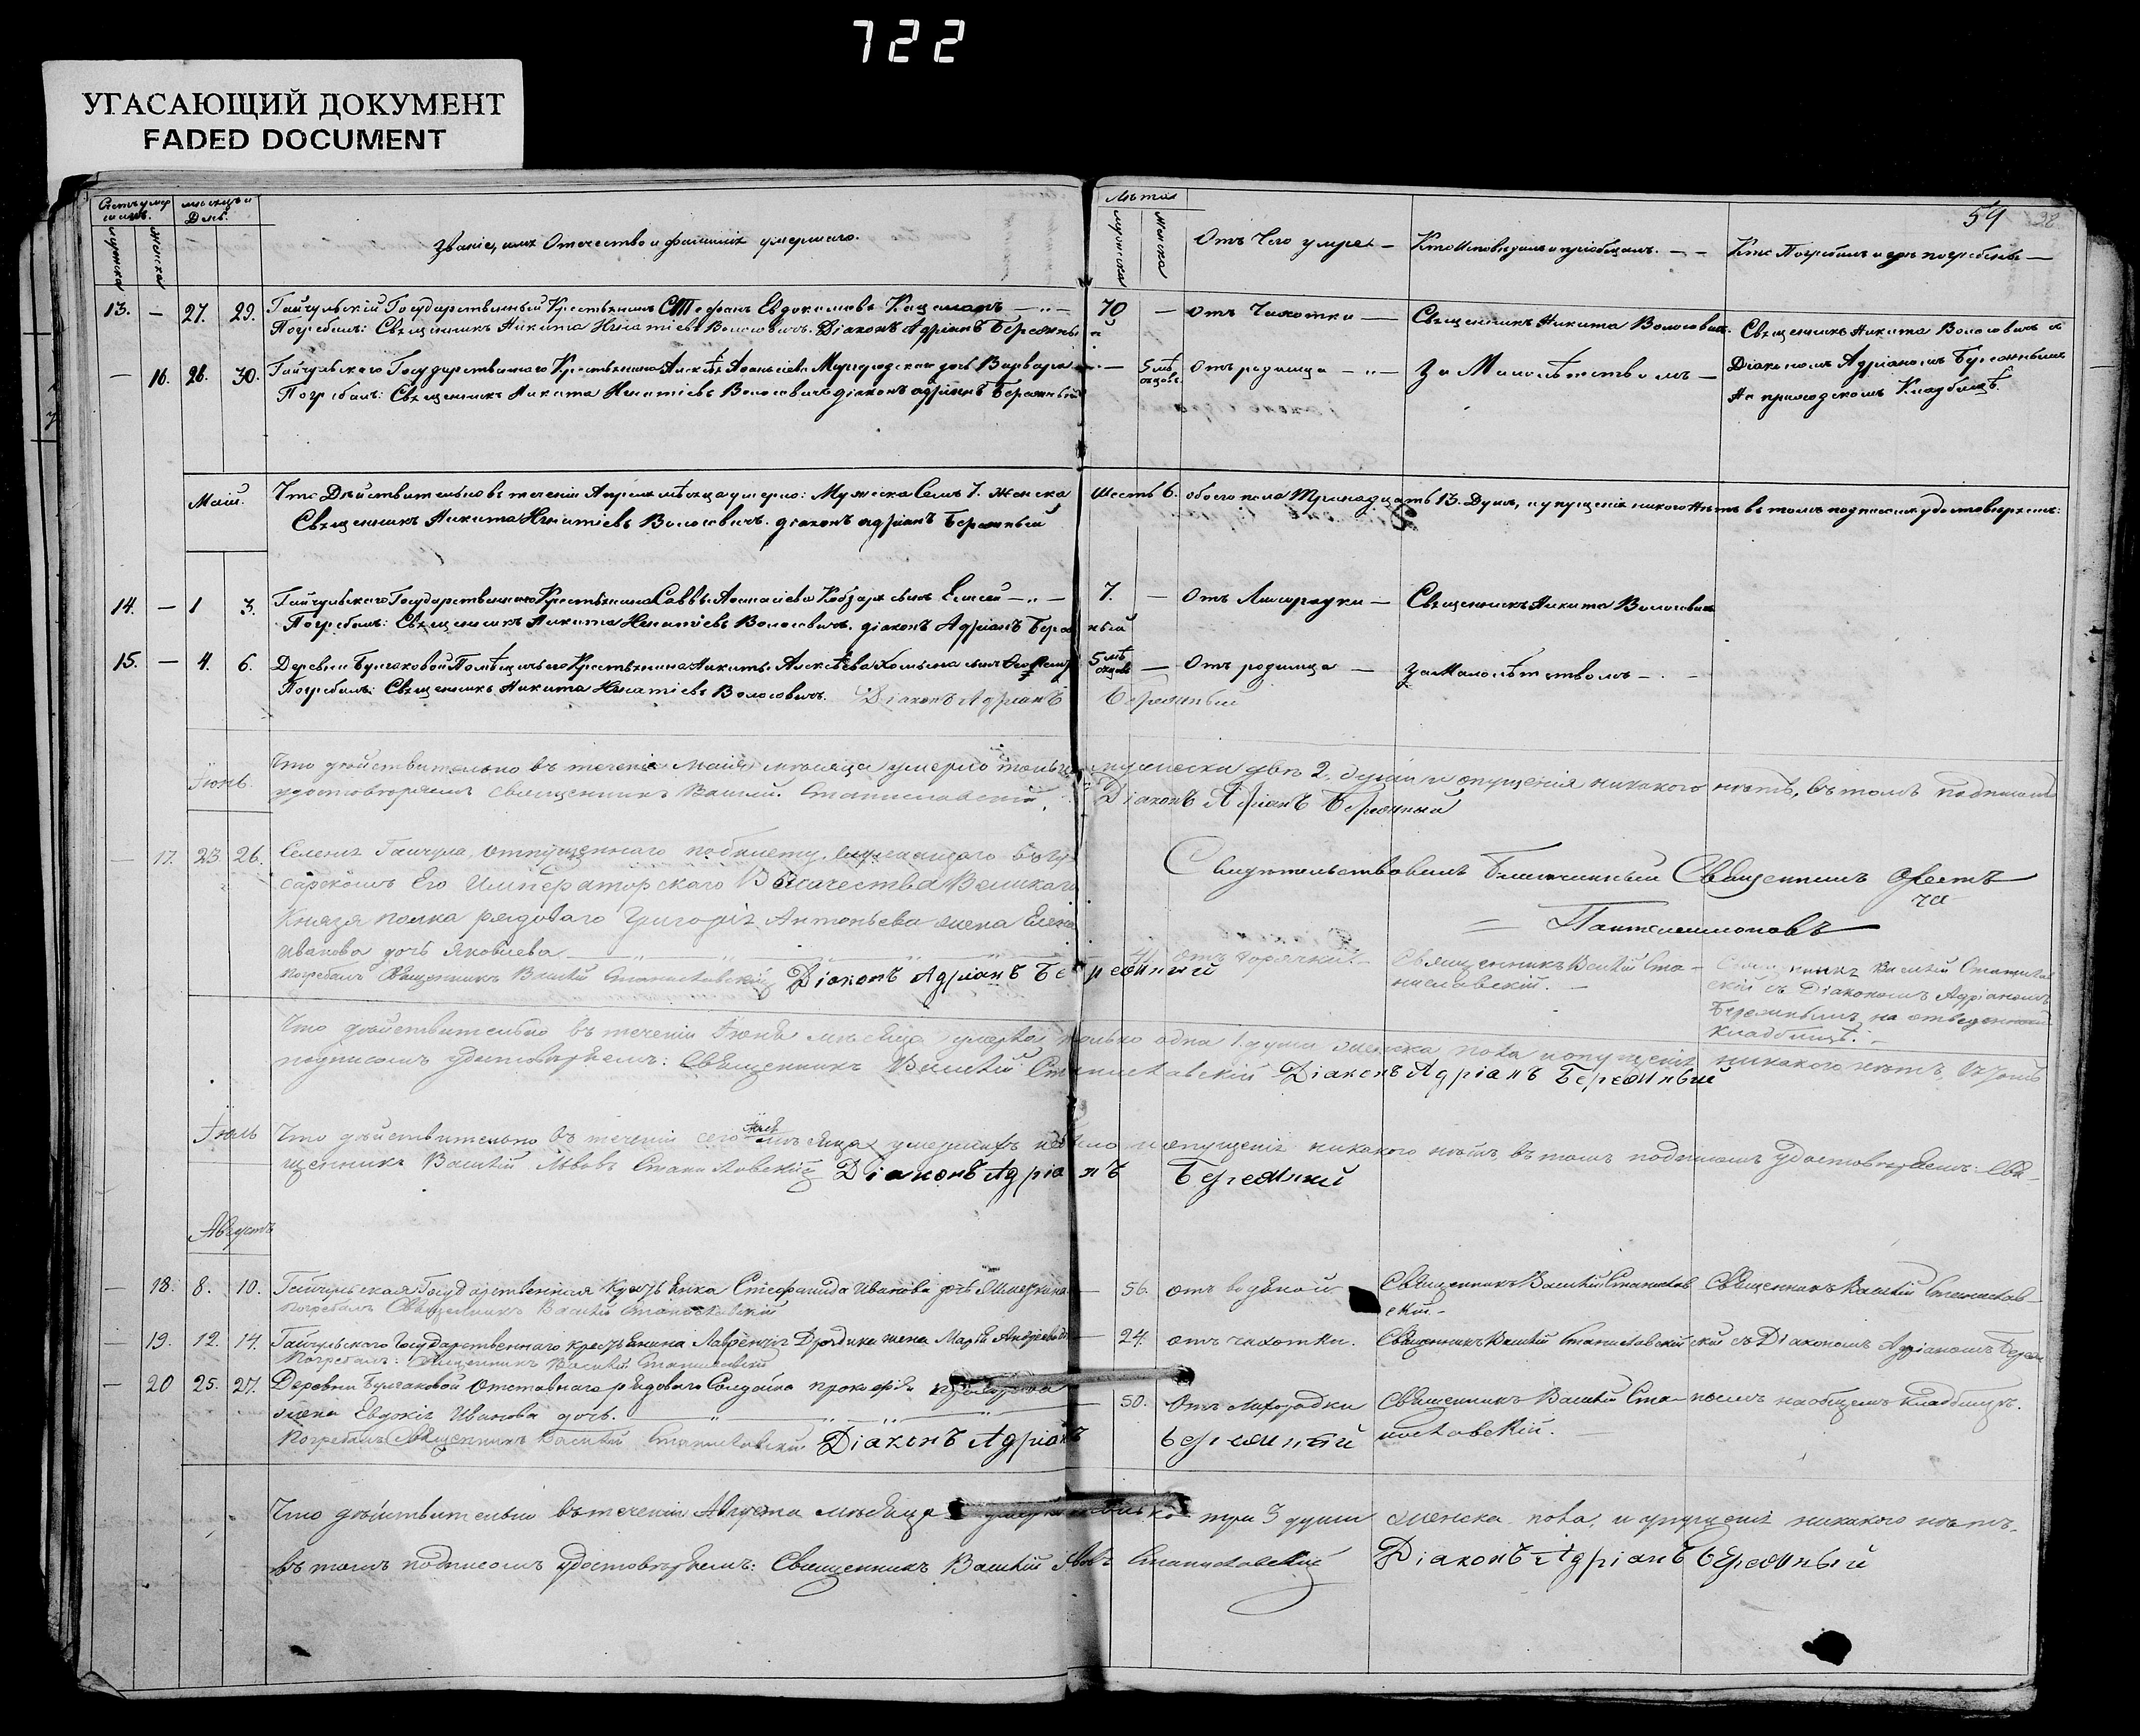 722
УГАСАЮЩИЙ ДОКУМЕНТ
FADED DOCUMENT
59
Званіе, имя Отечество и фамилія умершаго.
Лѣта
Отъ Чего умре
Кто Исповедалъ и пріобщалъ.
Кто Погребалъ и гдѣ погребенъ
13. — 27. 29. Гайчульскій Государственный Крестьянинъ Стефанъ Евдокимовъ 70 — Отъ Чахотки — Священникъ Никита Волосовичъ. Священникъ Никита Волосовичъ
Погребалъ: Священникъ Никита Игнатіевъ Волосовичъ. Діаконъ Адріанъ Бережный
— 16. 28. 30. Гайчульскаго Государственнаго Крестьянина дочь Варвара — 5 Отъ родимца — За Малолѣтствомъ — Діакономъ Адріаномъ Бережнымъ
Погребалъ: Священникъ Никита Игнатіевъ Волосовичъ діаконъ адріанъ Бережный На приходскомъ Кладбищѣ.
Маій. Что Дѣйствительно въ теченіи Апреля мѣсяца умерло: Мужеска Семь 7. женска Шесть 6. обоего пола Тринадцать 13. Душъ, и упущенія никого Нѣтъ въ томъ подписомъ удостовѣряемъ:
Священникъ Никита Игнатіевъ Волосовичъ. діаконъ адріанъ Бережный
14. — 1 3. Гайчульскаго Государственнаго Крестьянина Саввы Аѳанасіева Кобзаря сынъ Елисей 7. — Отъ Лихорадки — Священникъ Никита Волосовичъ
Погребалъ: Священникъ Никита Игнатіевъ Волосовичъ. діаконъ Адріанъ Бережный
15. — 4. 6. Деревни Булгаковой Помѣщичьего Крестьянина Никиты Алексѣева сынъ 5 — Отъ родимца — за Малолѣтствомъ
Погребалъ: Священникъ Никита Игнатіевъ Волосовичъ. Діаконъ Адріанъ Бережный
Іюнь. Что дѣйствительно въ теченіи маія мѣсяца умерло только мужеска двѣ 2. души и опущенія никакого нѣтъ, въ томъ подписомъ
удостовѣряемъ священникъ Василій Станиславскій. Діаконъ Адріанъ Бережный
— 17. 23. 26. Селенія Гайчула, отпущеннаго по билету, служащаго въ Гу-
сарскомъ Его Императорскаго Высочества Великаго
Князя полка рядоваго Григорія Антоньева жена Елена
Иванова дочь Яковлева
Свидетельствовалъ Благочинный Священникъ Орестъ
Пантелеимоновъ
отъ горячки — Священникъ Василій Ста-
ниславскій. —
Священникъ Василій Станислав-
скій съ Діакономъ Адріаномъ
Бережнымъ на отведенномъ
кладбищѣ.
погребалъ Священникъ Василій Станиславскій Діаконъ Адріанъ Бережный
Что дѣйствительно въ теченіи Іюня мѣсяца умерла только одна 1 душа женска пола и опущенія никакого нѣтъ, въ томъ
подписомъ удостовѣряемъ: Священникъ Василій Станиславскій Діаконъ Адріанъ Бережный
Іюль Что дѣйствительно въ теченіи сего Іюля мѣсяца умершихъ небыло и опущенія никакого нѣтъ въ томъ подписомъ удостовѣряемъ: Свя-
щенникъ Василій Львовъ Станиславскій Діаконъ Адріанъ Бережный
Августъ
— 18. 8. 10. Гайчульская Государственная крестьянка Стефанида Иванова дочь — 56. отъ водяной Священникъ Василій Станислав- Священникъ Василій Станислав-
погребалъ Священникъ Василій Станиславскій скій. —
— 19. 12. 14. Гайчульского Государственнаго крестьянина Лаврентія жена Марья Андреева — 24. отъ чахотки. Священникъ Василій Станиславскій скій съ Діакономъ Адріаномъ Береж-
Погребалъ: Священникъ Василій Станиславскій
— 20 25. 27. Деревни Булгаковой Отставнаго рядоваго Солдата прокофія — 50. Отъ лихорадки Священникъ Василій Ста- нымъ на общемъ кладбищѣ.
жена Евдокія Иванова дочь. ниславскій.
Погребалъ Священникъ Василій Станиславскій Діаконъ Адріанъ Бережный
Что дѣйствительно въ теченіи Августа мѣсяца умерло только три 3 души женска пола, и упущенія никакого нѣтъ.
въ томъ подписомъ удостовѣряемъ: Священникъ Василій Львовъ Станиславскій Діаконъ Адріанъ Бережный